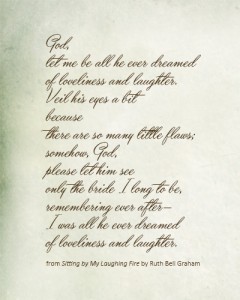 God,
let me be all he ever dreamed
of loveliness and laughter.
Veil his eyes a bit
because
there are so many little flaws;
somehow, God,
please let him see
only the bride I long to be,
remembering ever after—
I was all he ever dreamed
of loveliness and laughter.
from Sitting by My Laughing Fire by Ruth Bell Graham